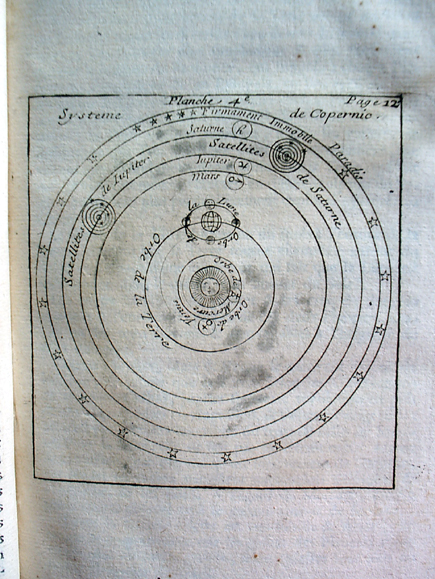 Planche. 4e.
Page 12
Systeme de Copernic.
Firmament Immobile Paradis
Saturne
Satellites de Saturne
Jupiter
Satellites de Jupiter
Mars
Orbe de la Lune
Orbe de la Terre
Orbe de Mercure
Orbe de Venus